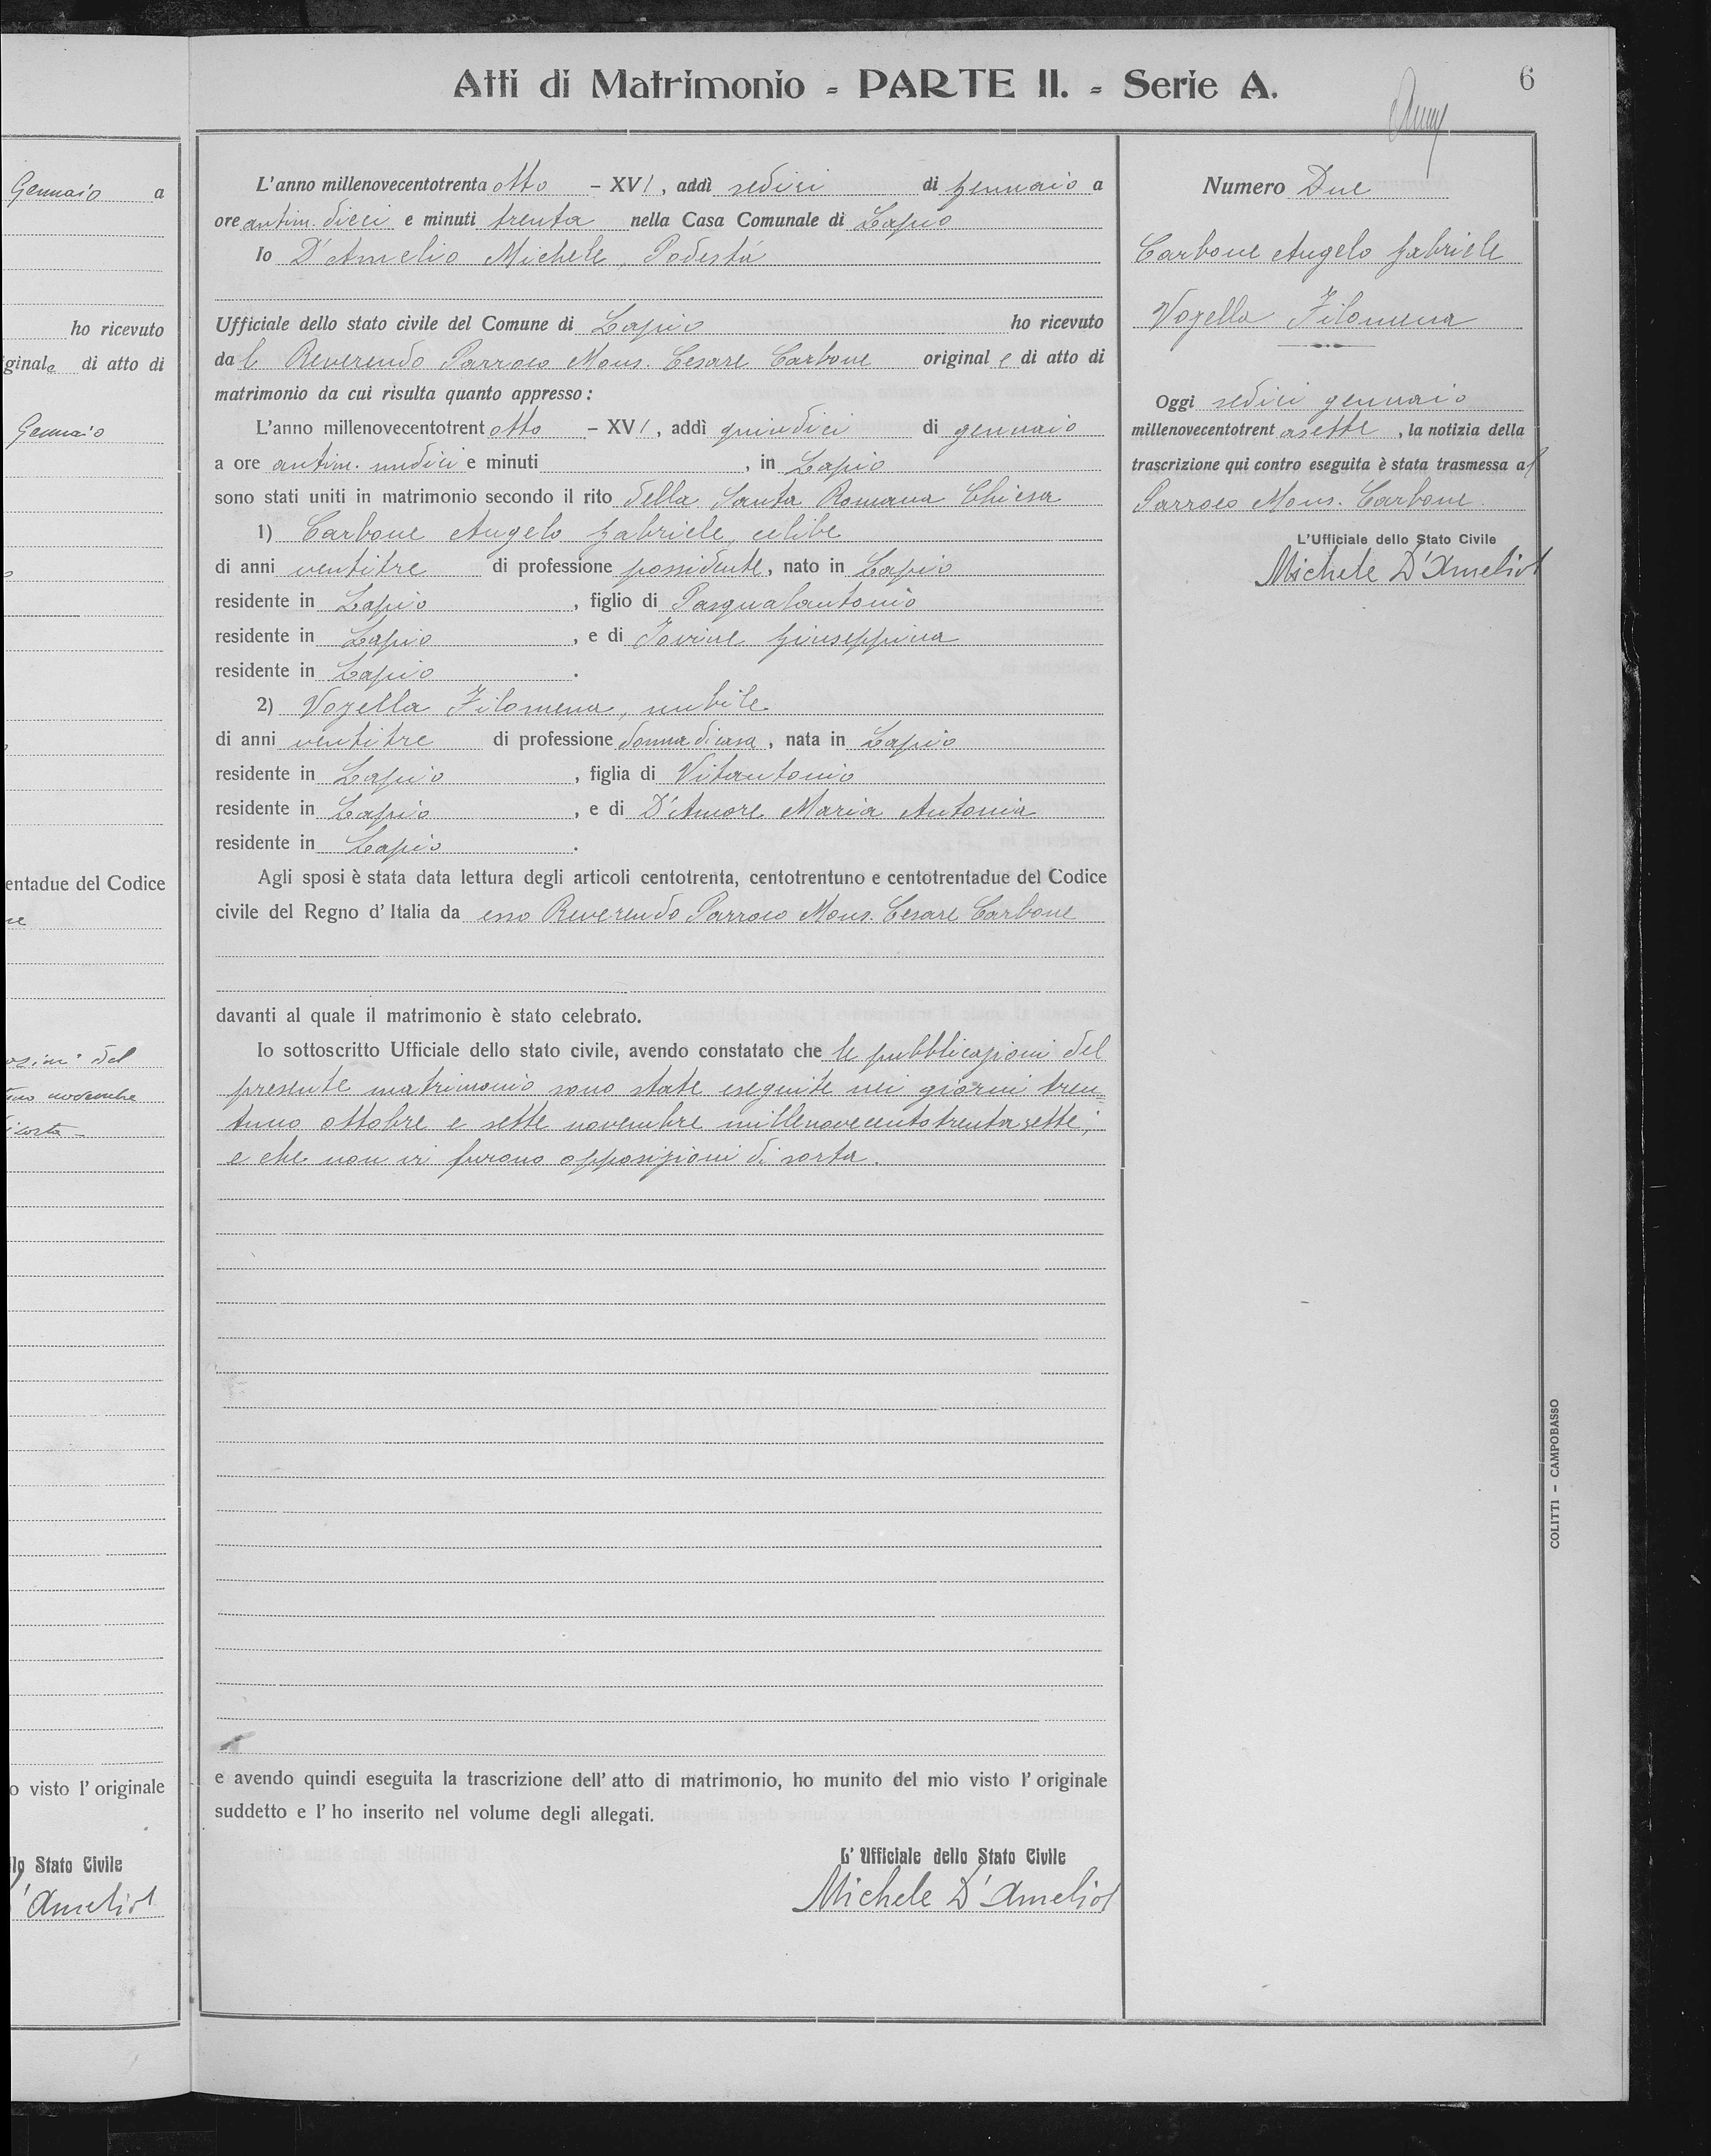 Atti di Matrimonio - PARTE II. - Serie A.
6
Gennaio a
ho ricevuto
iginale di atto di
Gennaio
entadue del Codice
ne
del
novembre
visto l'originale
Stato Civile
D'Amelio
L'anno millenovecentotrenta otto - XVI, addì sedici di gennaio a
ore antim. dieci e minuti trenta nella Casa Comunale di Lapio
Io D'Amelio Michele, Podestà
Ufficiale dello stato civile del Comune di Lapio ho ricevuto
dal Reverendo Parroco Mons. Cesare Carbone originale di atto di
matrimonio da cui risulta quanto appresso:
L'anno millenovecentotrent otto - XVI, addì quindici di gennaio
a ore antim. undici e minuti , in Lapio
sono stati uniti in matrimonio secondo il rito della Santa Romana Chiesa
1) Carbone Angelo Gabriele, celibe
di anni ventitre di professione possidente, nato in Lapio
residente in Lapio , figlio di Pasqualantonio
residente in Lapio , e di Iovine Giuseppina
residente in Lapio .
2) Vozella Filomena, nubile
di anni ventitre di professione donna di casa, nata in Lapio
residente in Lapio , figlia di Vitantonio
residente in Lapio , e di D'Amore Maria Antonia
residente in Lapio .
Agli sposi è stata data lettura degli articoli centotrenta, centotrentuno e centotrentadue del Codice
civile del Regno d'Italia da esso Reverendo Parroco Mons. Cesare Carbone
davanti al quale il matrimonio è stato celebrato.
Io sottoscritto Ufficiale dello stato civile, avendo constatato che le pubblicazioni del
presente matrimonio sono state eseguite nei giorni tren=
tuno ottobre e sette novembre millenovecentotrentasette;
e che non vi furono opposizioni di sorta.
e avendo quindi eseguita la trascrizione dell'atto di matrimonio, ho munito del mio visto l'originale
suddetto e l'ho inserito nel volume degli allegati.
L'Ufficiale dello Stato Civile
Michele D'Amelio
Numero Due
Carbone Angelo Gabriele
Vozella Filomena
Oggi sedici gennaio
millenovecentotrent asette, la notizia della
trascrizione qui contro eseguita è stata trasmessa al
Parroco Mons. Carbone.
L'Ufficiale dello Stato Civile
Michele D'Amelio
COLITTI - CAMPOBASSO